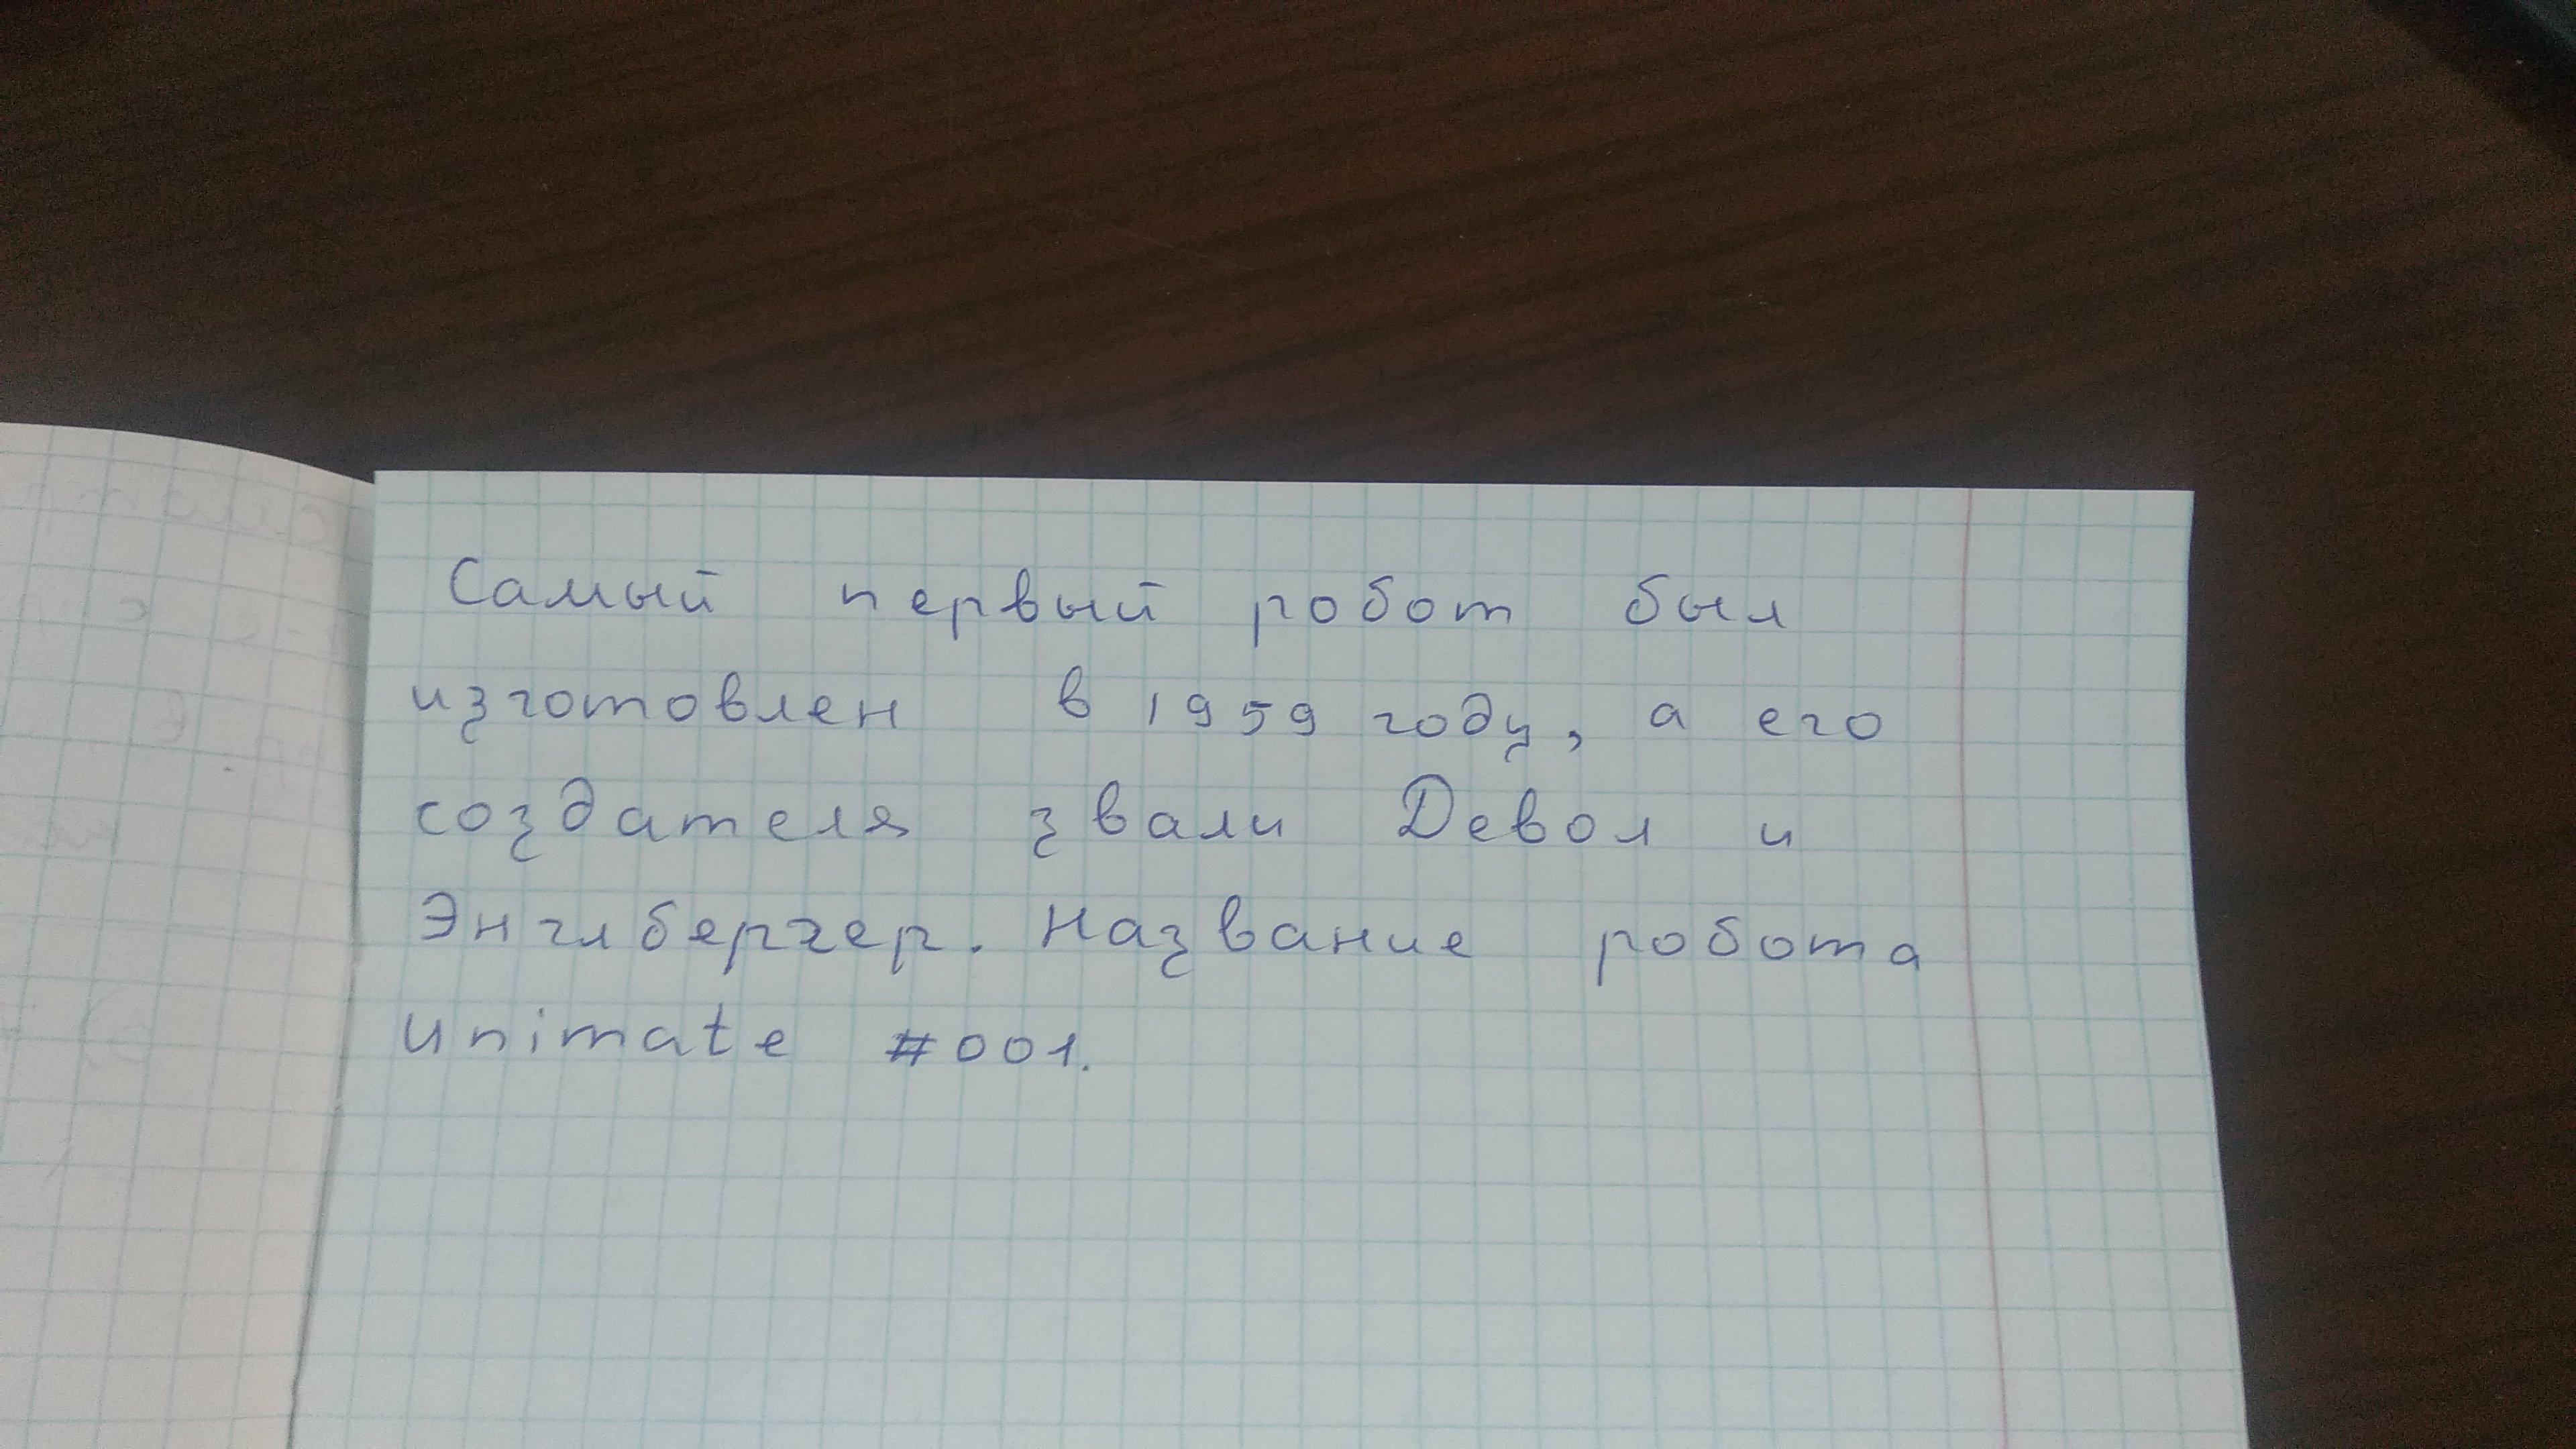 Самый первый робот был
изготовлен в 1959 году, а его
создателя звали Девол и
Энглбергер. Название робота
Unimate #001.